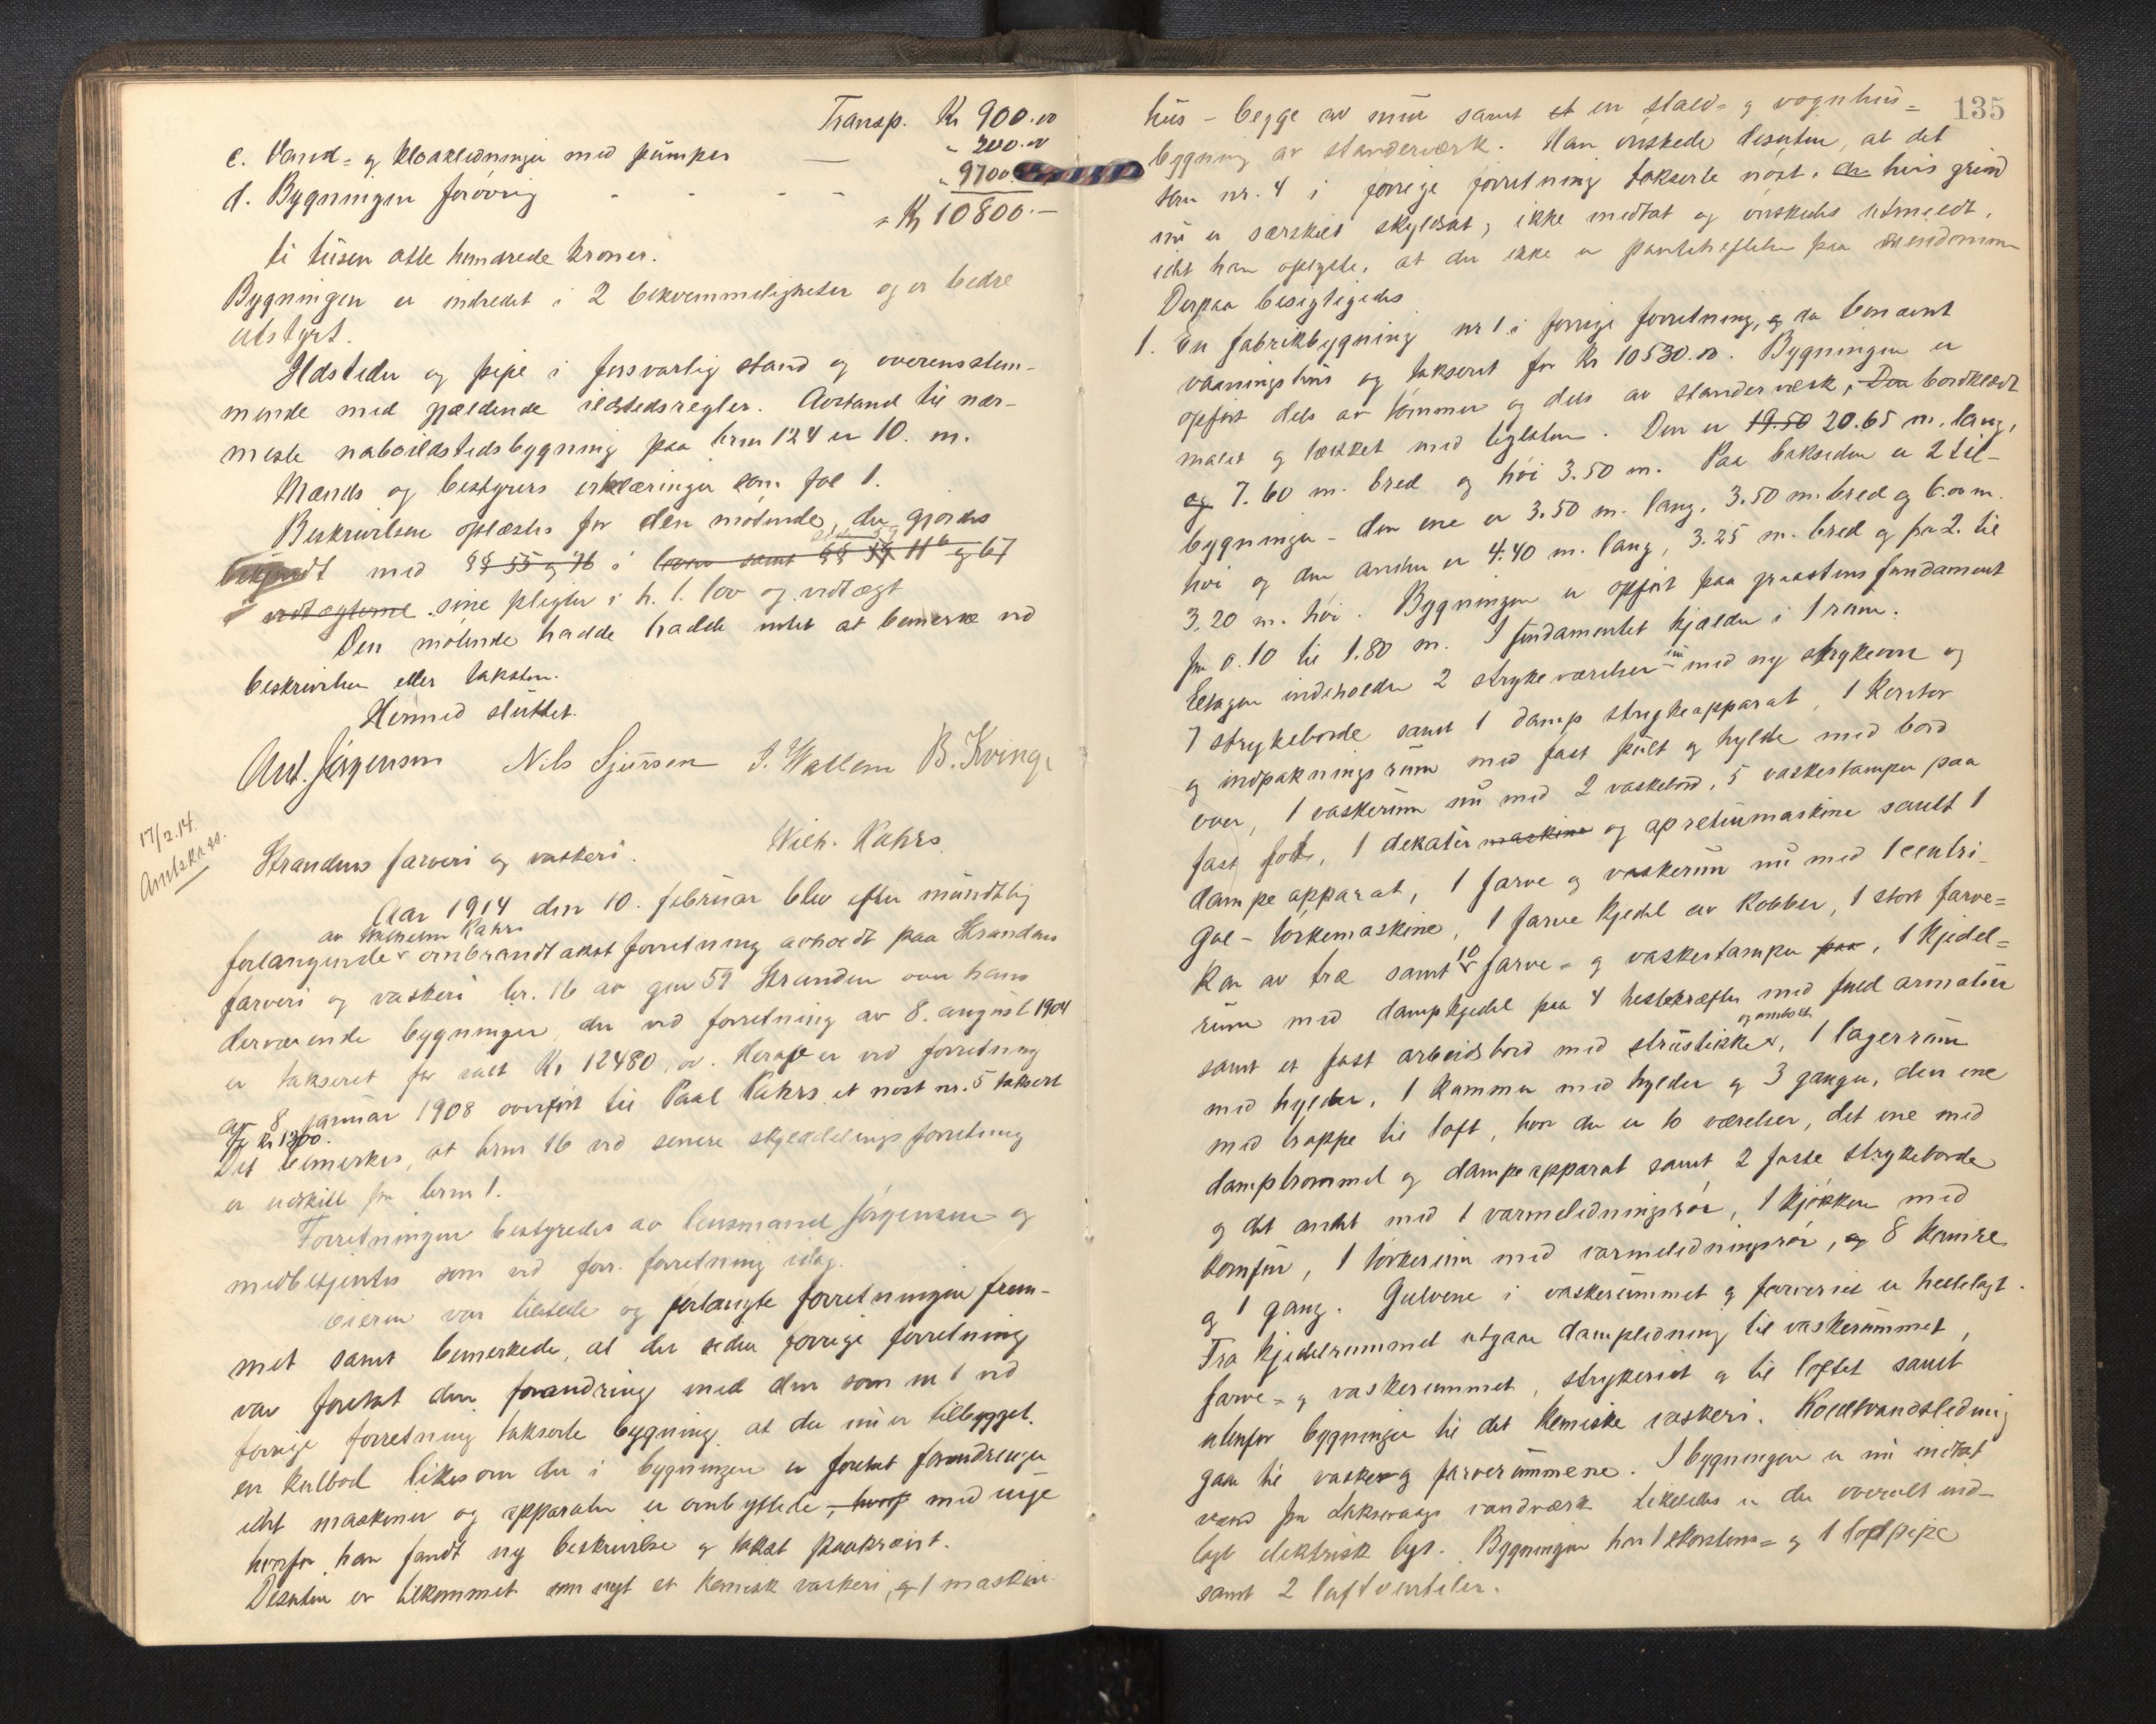 Transp. Kr 900.00
c. Vand- og kloakledninger med pumper — " 200.00
d. Bygningen forøvrig - - - - " 9700.
= Kr 10800.-
ti tusen otte hundrede kroner.
Bygningen er indredet i 2 bekvemmeligheter og er bedre
utstyrt.
Ildsteder og pipe i forsvarlig stand og overensstem-
mende med gjældende ildstedsregler. Avstand til nær-
meste naboildstedsbygning paa brnr 124 er 10. m.
Mænds og bestyrers erklæringer som fol 1.
Beskrivelsen oplæstes for den møtende, der gjordes
bekjendt med §§ 55 og 76 i loven samt §§ 11 og 67
i vedtægterne sine pligter i h. t. lov og vedtægt
Den møtende hadde hadde intet at bemerke ved
beskrivelsen eller taksten.
Hermed sluttet.
Ant. Jørgensen Nils Sjursen J. Wallem B. Kvinge
17/2.14.
Amtskass.
Strandens farveri og vaskeri. Wilh. Kahrs
Aar 1914 den 10. februar blev efter mundtlig
av Wilhelm Kahrs
forlangende ombrandtakstforretning avholdt paa Strandens
farveri og vaskeri br. 16 av gnr 59 Stranden over hans
derværende bygninger, der ved forretning av 8. august 1904
er takseret for ialt Kr 12480,00. Herav er ved forretning
av 8 januar 1908 overført til Paul Kahrs et nøst nr. 5 taksert
for Kr 1300.
Det bemerkes, at brnr 16 ved senere skylddelingsforretning
er utskilt fra brnr 1.
Forretningen bestyredes av lensmand Jørgensen og
medbetjentes som ved forr. forretning idag.
Eieren var tilstede og forlangte forretningen frem-
met samt bemerkede, at der siden forrige forretning
var foretat den forandring med den som nr 1 ved
forrige forretning takserte bygning at der nu er tilbygget
en kulbod likesom der i bygningen er foretat forandringer
idet maskiner og apparater er ombyttede, hvorf med nye
hvorfor han fandt ny beskrivelse og takst paakrævet.
Desuten er tilkommet som nyt et kemisk vaskeri, og 1 maskin-
135
hus - begge av mur samt et en stald- og vognhus-
bygning av standerværk. Han ønskede desuten, at det
som nr. 4 i forrige forretning takserte nøst, der hvis grund
nu er særskilt skyldsat, ikke medtat og ønskedes utmeldt,
idet han oplyste, at der ikke er pantehæftelser paa eiendommen
Derpaa besigtigedes
1. En fabrikbygning nr 1 i forrige forretning, og da benævnt
vaaningshus og takseret for Kr 10530.00. Bygningen er
opført dels av tømmer og dels av standerværk, Den bordklædt
malet og tækket med teglsten. Den er 19.50 20.65 m. lang,
og 7.60 m. bred og høi 3.50 m. Paa baksiden er 2 til-
bygninger - den ene er 3.50 m. lang, 3.50 m. bred og 6.00 m.
høi og den anden er 4.40 m. lang, 3.25 m. bred og fra 2. til
3,20 m. høi. Bygningen er opført paa graastens fundament
fra 0.10 til 1.80 m. I fundamentet kjælder i 1 rum.
Etagen indeholder 2 strykeværelser nu med ny strykeovn og
7 strykeborde samt 1 damp strykeapparat, 1 kontor
og indpakningsrum med fast pult og hylde med bord
over, 1 vaskerum nu med 2 vaskebord, 5 vaskestamper paa
fast fot, 1 dekatér maskine og apreturmaskine samt 1
dampeapparat, 1 farve og vaskerum nu med 1 centri-
gal-tørkemaskine, 1 farve kjedel av kobber, 1 stort farve-
kar av træ samt 10 farve- og vaskestamper paa, 1 kjedel-
rum med dampkjedel paa 4 hestekræfter med fuld armatur
samt et fast arbeidsbord med skrustikke og ambolt, 1 lagerrum
med hylder, 1 kammer med hylder og 3 ganger, den ene
med trappe til loft, hvor der er to værelser, det ene med
damptrommel og dampeapparat samt 2 faste strykeborde
og det andet med 1 varmeledningsrør, 1 kjøkken med
komfur, 1 tørkerum med varmeledningsrør, og 8 kamre
og 1 gang. Gulvene i vaskerummet og farveriet er hellelagt.
Fra kjedelrummet utgaar dampledning til vaskerummet,
farve- og vaskerummet, strykeriet og til loftet samt
utenfor bygningen til det kemiske vaskeri. Koldtvandsledning
gaar til vaske og farverummene. I bygningen er nu indtat
vand fra Laksevaags vandværk. Likeledes er der overalt ind-
lagt elektrisk lys. Bygningen har 1 skorstens- og 1 loftpipe
samt 2 luftventiler.